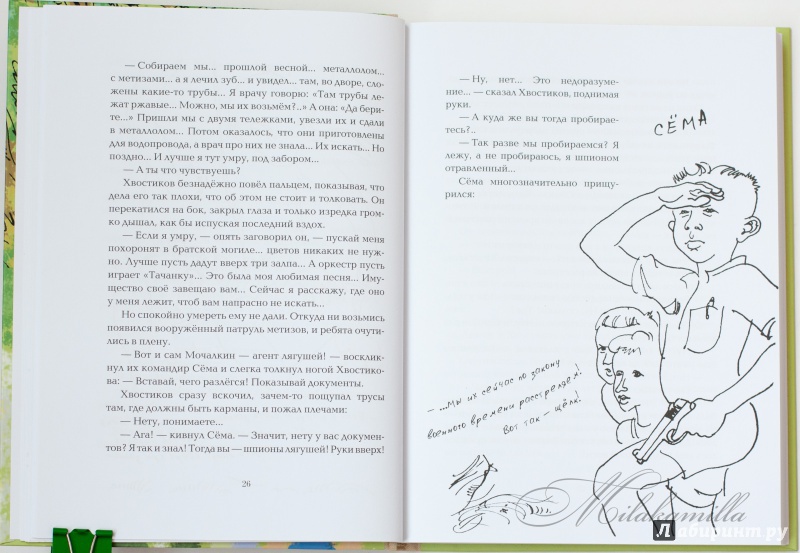 — Собираем мы... прошлой весной... металлолом...
с метизами... а я лечил зуб... и увидел... там, во дворе, сло-
жены какие-то трубы... Я врачу говорю: «Там трубы ле-
жат ржавые... Можно, мы их возьмём?..» А она: «Да бери-
те...» Пришли мы с двумя тележками, увезли их и сдали
в металлолом... Потом оказалось, что они приготовлены
для водопровода, а врач про них не знала... Их искать... Но
поздно... И лучше я тут умру, под забором...
— А ты что чувствуешь?
Хвостиков безнадёжно повёл пальцем, показывая, что
дела его так плохи, что об этом не стоит и толковать. Он
перекатился на бок, закрыл глаза и только изредка гром-
ко дышал, как бы испуская последний вздох.
— Если я умру, — опять заговорил он, — пускай меня
похоронят в братской могиле... цветов никаких не нуж-
но. Лучше пусть дадут вверх три залпа... А оркестр пусть
играет «Тачанку»... Это была моя любимая песня... Иму-
щество своё завещаю вам... Сейчас я расскажу, где оно
у меня лежит, чтоб вам напрасно не искать...
Но спокойно умереть ему не дали. Откуда ни возьмись
появился вооружённый патруль метизов, и ребята очути-
лись в плену.
— Вот и сам Мочалкин — агент лягушей! — восклик-
нул их командир Сёма и слегка толкнул ногой Хвостико-
ва: — Вставай, чего разлёгся! Показывай документы.
Хвостиков сразу вскочил, зачем-то пощупал трусы
там, где должны быть карманы, и пожал плечами:
— Нету, понимаете...
— Ага! — кивнул Сёма. — Значит, нету у вас докумен-
тов? Я так и знал! Тогда вы — шпионы лягушей! Руки вверх!
26
— Ну, нет... Это недоразуме-
ние... — сказал Хвостиков, поднимая
руки.
— А куда же вы тогда пробирае-
тесь?..
— Так разве мы пробираемся? Я
лежу, а не пробираюсь, я шпионом
отравленный...
Сёма многозначительно прищу-
рился:
СЁМА
— ...Мы их сейчас по закону
военного времени расстреляем!
Вот так — щёлк!
Milakamilla
Лабиринт.ру